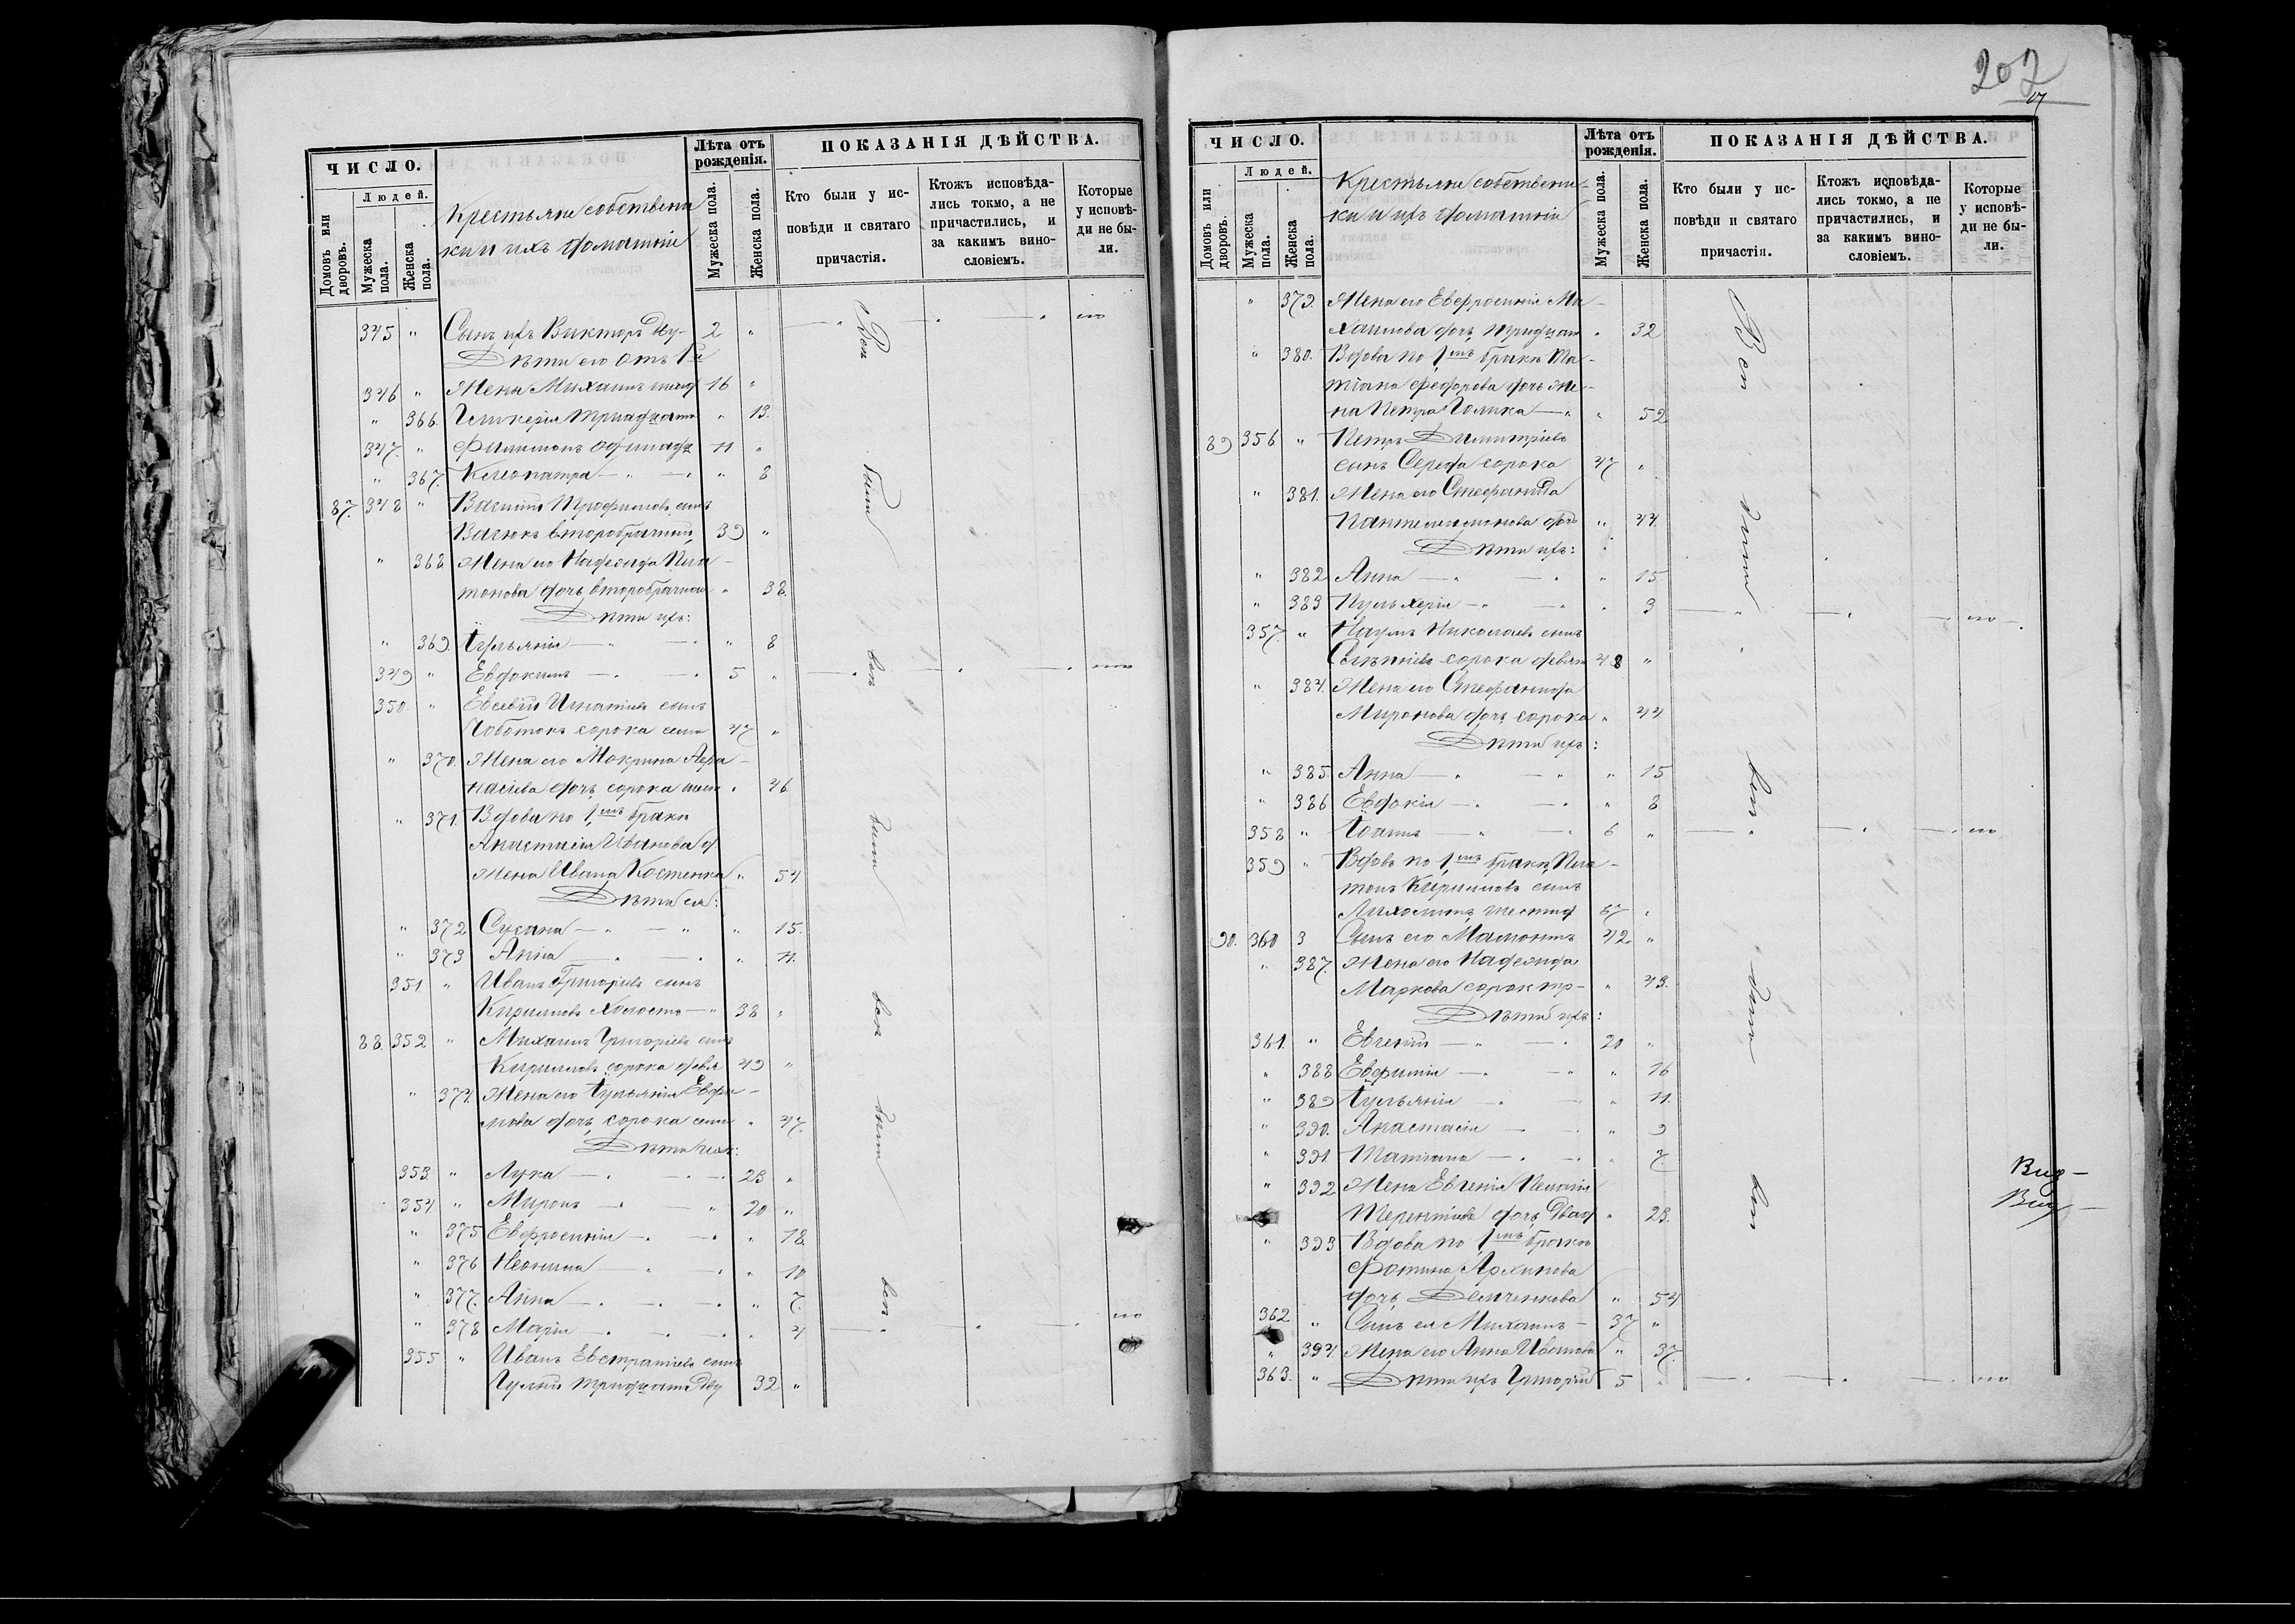 207
ЧИСЛО.
Людей.
Домовъ или дворовъ.
Мужеска пола.
Женска пола.
Крестьяне собствени
ки и ихъ домашніе
Лѣта отъ рожденія.
Мужеска пола.
Женска пола.
ПОКАЗАНІЯ ДѢЙСТВА.
Кто были у исповѣди и святаго причастія.
Ктожъ исповѣдались токмо, а не причастились, и за какимъ винословіемъ.
Которые у исповѣди не были.
345 " Сынъ ихъ Викторъ Дву- 2 "
Дѣти его отъ 1й
346 " Жены Михаилъ шестнад 16 "
" 366. Гликерія тринадцати " 13.
347. " Филимонъ одинадц 11 "
" 367. Клеопатра " 8
87. 348 " Василій Трофимовъ сынъ
Васюкъ второбрачный 39 "
" 368. Жена его Надежда Пла-
тонова дочь второбрачная " 38.
Дѣти ихъ:
" 369. Іульянія " 8
349 " Евдокимъ 5 "
350. " Евсевій Игнатіевъ сынъ
Чоботокъ сорока семи 47 "
" 370. Жена его Макрина Афа-
насіева дочь сорока шести " 46
" 371. Вдова по 1мъ бракѣ
Анастасія Иванова д.
жена Ивана Костенка " 54
Дѣти ея:
" 372 Сусана " 15.
" 373 Анна " 11.
351 " Иванъ Григоріевъ сынъ
Кириловъ холостъ 38 "
88. 352 " Михаилъ Григоріевъ сынъ
Кириловъ сорока девя 49 "
" 374. Жена его Іульянія Евфи-
мова дочь сорока семи " 47.
Дѣти ихъ:
353. " Лука 23 "
354 " Миронъ 20 "
" 375 Евфросинія " 18.
" 376 Неонила " 10
" 377. Анна " 7.
" 378 Марія " 4
355 " Иванъ Евстратіевъ сынъ
Гулый тридцати дву 32 "
Вси были вси были вси были вси
ЧИСЛО.
Людей.
Домовъ или дворовъ.
Мужеска пола.
Женска пола.
Крестьяне собствени-
ки и ихъ домашніе
Лѣта отъ рожденія.
Мужеска пола.
Женска пола.
ПОКАЗАНІЯ ДѢЙСТВА.
Кто были у исповѣди и святаго причастія.
Ктожъ исповѣдались токмо, а не причастились, и за какимъ винословіемъ.
Которые у исповѣди не были.
" 379. Жена его Евфросинія Ми-
хаилова дочь тридцат " 32
" 380. Вдова по 1мъ бракѣ Та-
тіана Федорова дочь же-
на Петра Голика " 52
89 356 " Петръ Димитріевъ
сынъ Середа сорока 47 "
" 381. Жена его Стефанида
Пантелеимонова дочь " 44
Дѣти ихъ:
" 382 Анна " 15
" 383 Пульхерія " 3
357. " Наумъ Николаевъ сынъ
сорока 48 "
" 384. Жена его Стефанида
Миронова дочь сорока " 44
Дѣти ихъ:
" 385. Анна " 15
" 386 Евдокія " 8
358 " Іоаннъ 6 "
359 " Вдовъ по 1мъ бракѣ Пла-
тонъ Кириловъ сынъ
шестид 67 "
90. 360 3 Сынъ его Мамонтъ 42 "
" 387. Жена его Надежда
Маркова сорок тр- " 43.
Дѣти ихъ:
361. " Евгеній 20 "
" 388 Евфимія " 16
" 389 Іульянія " 11.
" 390. Анастасія " 9
" 391. Татіана " 7.
" 392 Жена Евгенія Пелагія
Терентіева дочь двад " 23.
" 393 Вдова по 1мъ бракѣ
Фотина Архипова
дочь Демченкова " 54
362 " Сынъ ея Михаилъ 37 "
" 394. Жена его Анна Иванова " 37.
363. " Дѣти ихъ Григорій 5 "
Вси были вси были вси